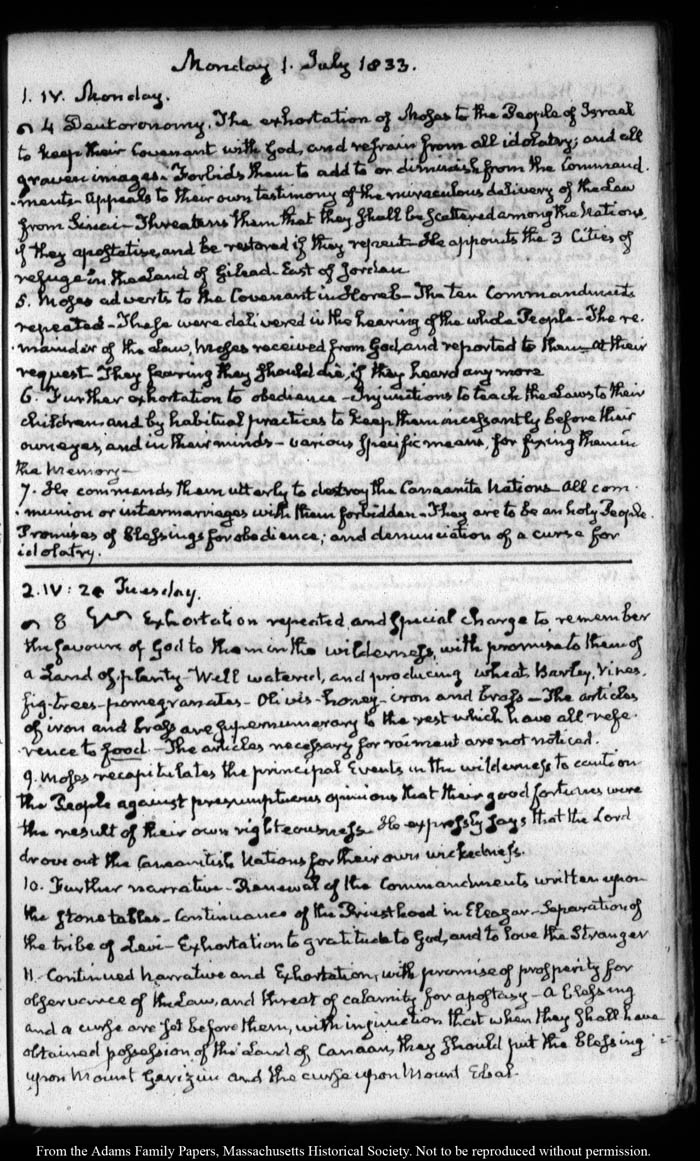 Monday 1. July 1833.
1. IV. Monday.
4 Deutoronomy. The exhortation of Moses to the People of Israel
to keep their Covenant with God, and refrain from all idolatry; and all
graven images. Forbids them to add to or diminish from the Command-
-ments. Appeals to their own testimony of the miraculous delivery of the Law
from Sinai - Threatens them that they shall be scattered among the Nations,
if they apostatise, and be restored if they repent - He appoints the 3 Cities of
refuge in the Land of Gilead East of Jordan
5. Moses adverts to the Covenant in Horeb - The ten Commandments
repeated - These were delivered in the hearing of the whole People - The re-
-mainder of the Law, Moses received from God, and reported to them at their
request - They fearing they should die, if they heard any more
6. Further exhortation to obedience - Injunctions to teach the Laws to their
children and by habitual practices to keep them incessantly before their
own eyes, and in their minds - various specific means, for fixing them in
the Memory -
7. He commands them utterly to destroy the Canaanite Nations. All com-
-munion or intermarriages with them forbidden - They are to be an holy People.
Promises of Blessings for obedience; and denunciation of a curse for
idolatry.
2. IV: 20 Tuesday.
8 Exhortation repeated, and special charge to remember
the favours of God to them in the wilderness, with promise to them of
a Land of plenty - Well watered, and producing wheat, Barley, Vines,
fig-trees - pomegranates - Olives - honey - iron and brass - The articles
of iron and brass are supernumerary to the rest which have all refe-
rence to food - The articles necessary for raiment are not noticed.
9. Moses recapitulates the principal Events in the wilderness to caution
the People against presumptuous opinions that their good fortunes were
the result of their own righteousness. He expressly says that the Lord
drove out the Canaanitish Nations for their own wickedness.
10. Further narrative - Renewal of the Commandments written upon
the stone tables - Continuance of the Priesthood in Eleazar - Separation of
the tribe of Levi - Exhortation to gratitude to God, and to love the Stranger
11. Continued narrative and Exhortation, with promise of prosperity for
observance of the Law, and threat of calamity for apostasy - A blessing
and a curse are set before them, with injunction that when they shall have
obtained possession of the Land of Canaan, they should put the blessing
upon Mount Gerizim and the curse upon Mount Ebal.
From the Adams Family Papers, Massachusetts Historical Society. Not to be reproduced without permission.